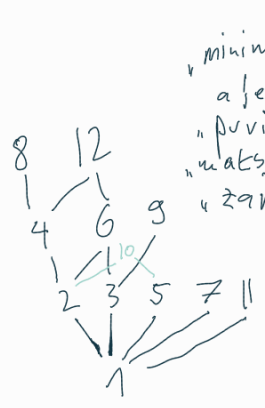 „minim
a je
„prvi
„maks
„zar
8 12
4 6 9
10
2 3 5 7 11
1